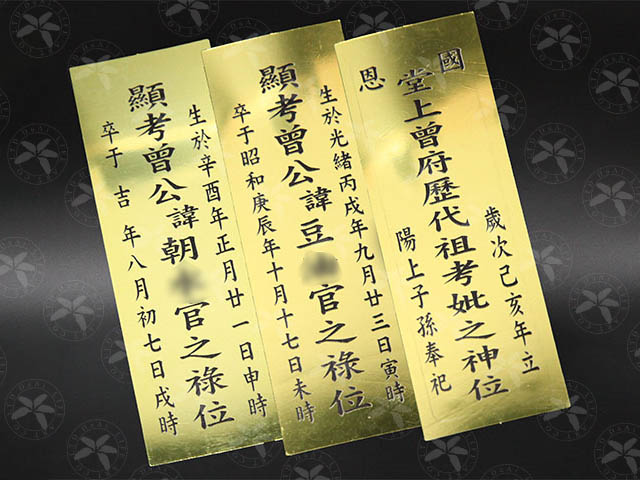 國恩
堂上曾府歷代祖考妣之神位
歲次己亥年立
陽上子孫奉祀
生於光緒丙戌年九月廿三日寅時
顯考曾公諱豆 官之祿位
卒于昭和庚辰年十月十七日未時
生於辛酉年正月廿一日申時
顯考曾公諱朝 官之祿位
卒于 吉 年八月初七日戌時